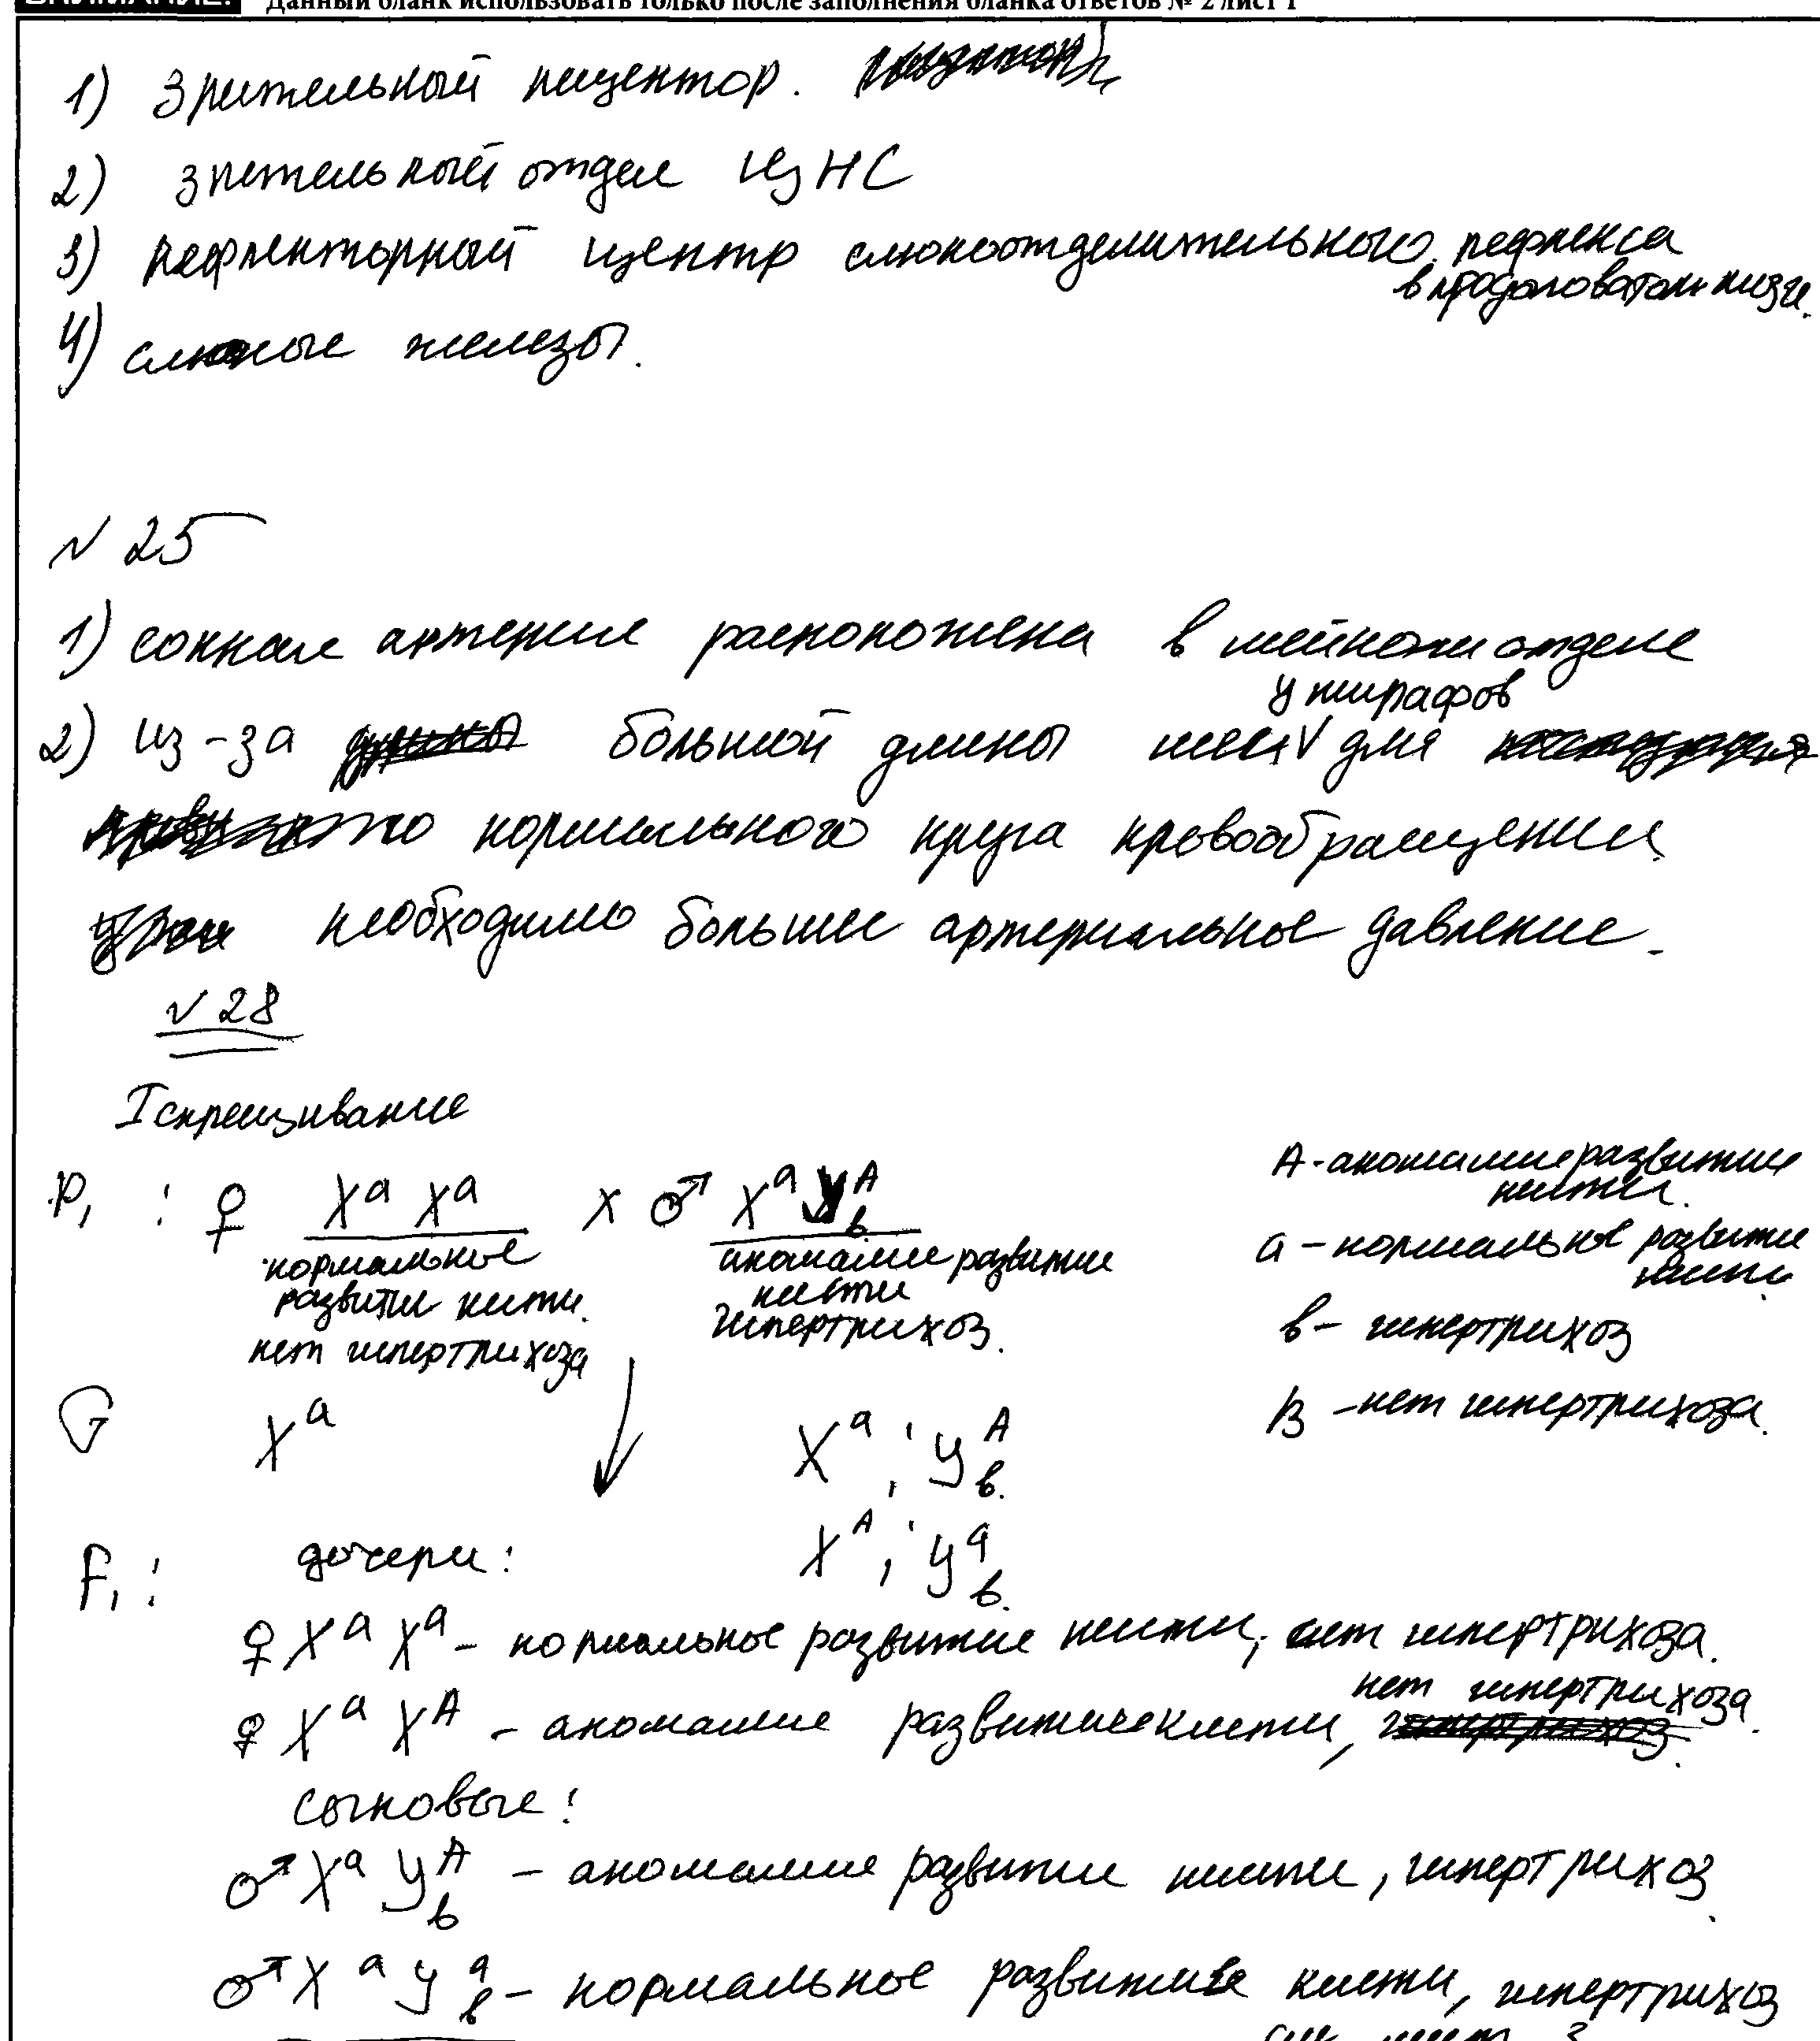 Данный бланк использовать только после заполнения бланка ответов № 2 лист 1
1) Зрительный рецептор.
2) зрительный отдел ЦНС
3) рефлекторный центр слюноотделительного рефлекса
в продолговатом мозге.
4) слюные железы.
№ 25
1) сонная артерия расположена в шейном отделе
у жирафов
2) из-за большой длины шеи V для
нормального круга кровообращения
необходимо большее артериальное давление.
№ 28
I скрещивание
A - аномалие развитие
кисти.
P₁ : ♀ Xᵃ Xᵃ x ♂ Xᵃ Yᴬв
нормальное
развитие кисти.
нет гипертрихоза
аномалие развитие
кисти
гипертрихоз.
a – нормальное развитие
кисти.
в – гипертрихоз
B – нет гипертрихоза.
G Xᵃ Xᵃ ; Yᴬв.
Xᴬ ; Yᵃв.
F₁ : дочери:
♀ Xᵃ Xᵃ – нормальное развитие кисти, нет гипертрихоза.
нет гипертрихоза.
♀ Xᵃ Xᴬ – аномалие развитие кисти,
сыновье:
♂ Xᵃ Yᴬв – аномалие развитие кисти, гипертрихоз.
♂ Xᵃ Yᵃв – нормальное развитие кисти, гипертрихоз